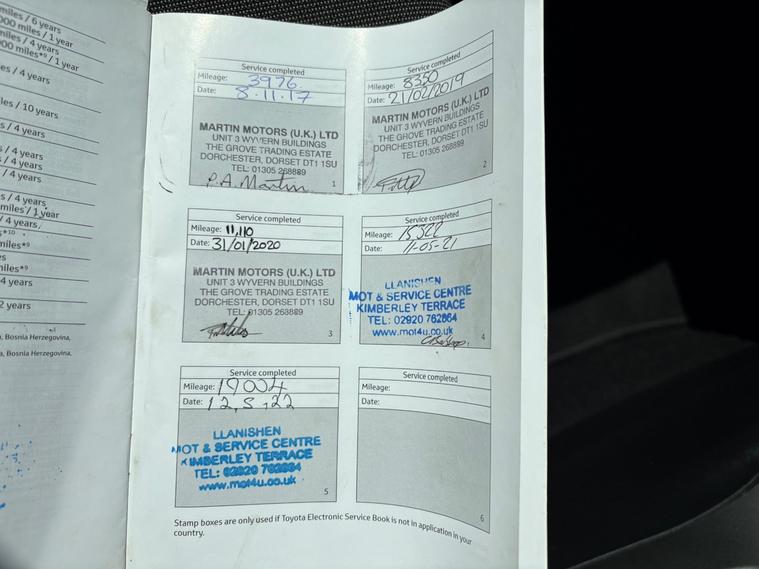 miles / 6 years
000 miles / 1 year
miles / 4 years
000 miles*⁹ / 1 year
es / 4 years
les / 10 years
s / 4 years
/ 4 years
/ 4 years
/ 4 years
s / 4 years
miles / 1 year
/ 4 years,
miles*⁹
miles*⁹
4 years
2 years
, Bosnia Herzegovina,
a, Bosnia Herzegovina,
Service completed
Mileage: 3976
Date: 8.11.17
MARTIN MOTORS (U.K.) LTD
UNIT 3 WYVERN BUILDINGS
THE GROVE TRADING ESTATE
DORCHESTER, DORSET DT1 1SU
TEL: 01305 268889
P.A. Martin
1
Service completed
Mileage: 8350
Date: 21/02/2019
MARTIN MOTORS (U.K.) LTD
UNIT 3 WYVERN BUILDINGS
THE GROVE TRADING ESTATE
DORCHESTER, DORSET DT1 1SU
TEL: 01305 268889
2
Service completed
Mileage: 11,110
Date: 31/01/2020
MARTIN MOTORS (U.K.) LTD
UNIT 3 WYVERN BUILDINGS
THE GROVE TRADING ESTATE
DORCHESTER, DORSET DT1 1SU
TEL: 01305 268889
3
Service completed
Mileage: 15322
Date: 11-05-21
LLANISHEN
MOT & SERVICE CENTRE
KIMBERLEY TERRACE
TEL: 02920 762664
www.mot4u.co.uk
4
Service completed
Mileage: 19004
Date: 12,5,22
LLANISHEN
MOT & SERVICE CENTRE
KIMBERLEY TERRACE
TEL: 02920 762664
www.mot4u.co.uk
5
Service completed
Mileage:
Date:
6
Stamp boxes are only used if Toyota Electronic Service Book is not in application in your
country.